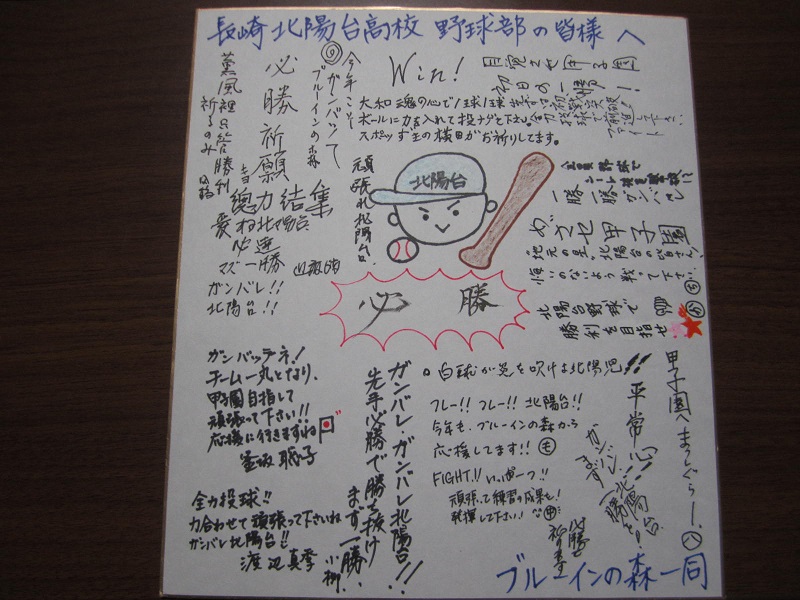 長崎北陽台高校 野球部の皆様へ
今年こそ
ガンバッテ
ブルーインの森
必勝祈願
薫風裡
勝利
祈るのみ
総力結集
北陽台
マズ一勝
ガンバレ!!
北陽台!!
頑張れ北陽台
Win!
目覚ませ
初日の一勝!
大和魂の心で1球1球
ボールに力を入れて投ナゲて下さい
スポッず王の横田がお祈りしてます。
北陽台
全員野球で
一勝一勝ガンバレ
めざせ甲子園
地元の星、北陽台の皆さん!
悔いのないよう戦って下さい
北陽台野球で
勝利を目指せ
必勝
ガンバッテネ!
チーム一丸となり、
甲子園目指して
頑張って下さい!!
応援に行きますね
全力投球!!
力合わせて頑張って下さいね
ガンバレ北陽台!!
渡辺真季
ガンバレ・ガンバレ北陽台!!
先手必勝で勝ち抜け
まず一勝、
小柳
白球が
北陽児!!
フレー!! フレー!! 北陽台!!
今年も、ブルーインの森から
応援してます!!
FIGHT!! いっぱーつ!!
頑張って練習の成果を!
発揮して下さい!
平常心!!
甲子園へまっしぐら!
ブルーインの森一同